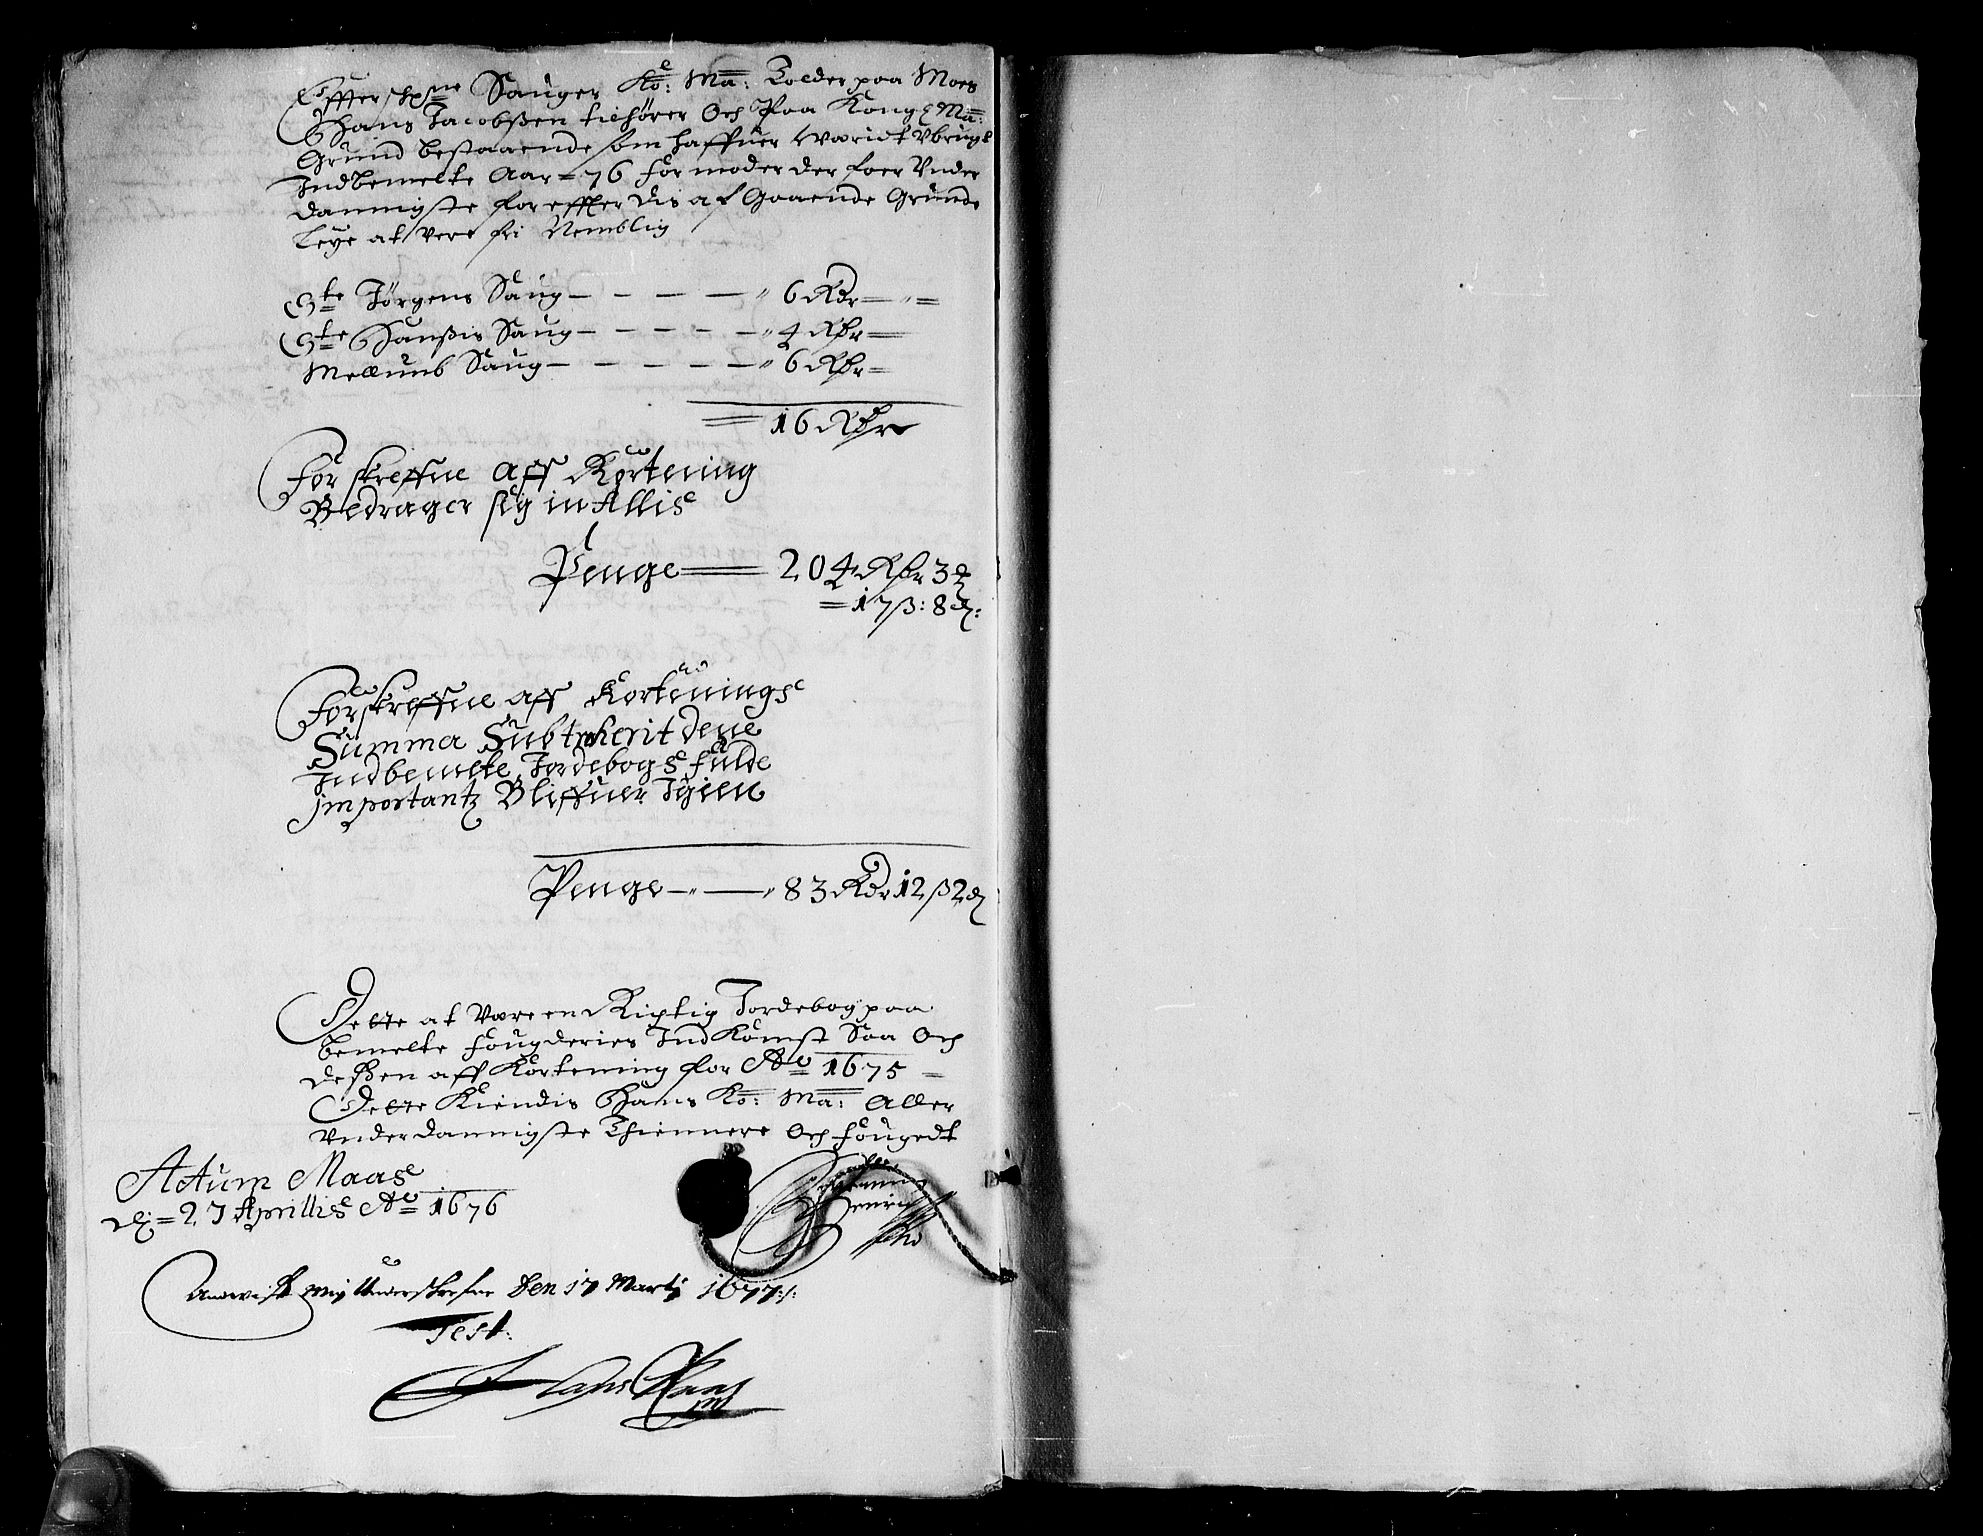 Effterschne Sauger Ko: Ma: Tolder paa Moes
Hans Jacobßen tilhører Och Paa Kong: Ma:
Grund bestaaende som haffuer weridt Vbrugt
Indbemelte Aar = 76 formoder der foer Vnder
dannigste for effter dis af Gaaende Grunde
Leye at vere fri Nemblig
Ste Jørgens Saug — — — — 6 Rdr
Ste Hanßis Saug — — — — 4 Rdr
Mellumb Saug — — — — — 6 Rdr
16 Rdr
Forskreffne aff Kortening
Bedrager sig in Allis
Penge — 204 Rdr 3
= 17 ß: 8 d:
Forskreffne aff Kortenings
Summa Subtraherit dene
Indbemelte Jordebogs fulde
jmportantz Bliffuer Igien
Penge — 83 Rdr 12 ß 2 d
Dette at Være en Rigtig Jordebog paa
bemelte fougderies IndKomst Saa Och
deßen aff Kortening for Ao 1675 —
Dette Kiendis Hans Ko: Ma: Aller
Vnderdannigste Thiennere Och fougedt
Actum Maas
d: = 27 Aprillis Ao 1676
Anuvist mig Underskrefne den 17 Martj 1677:/:
Test: